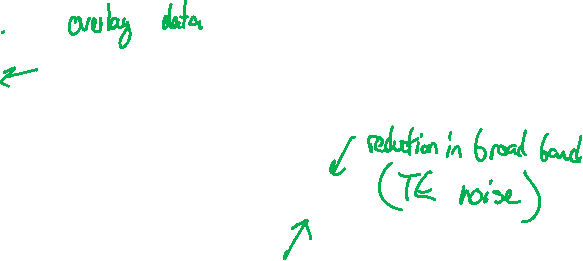 overlay data
reduction in broad band
(TE noise)